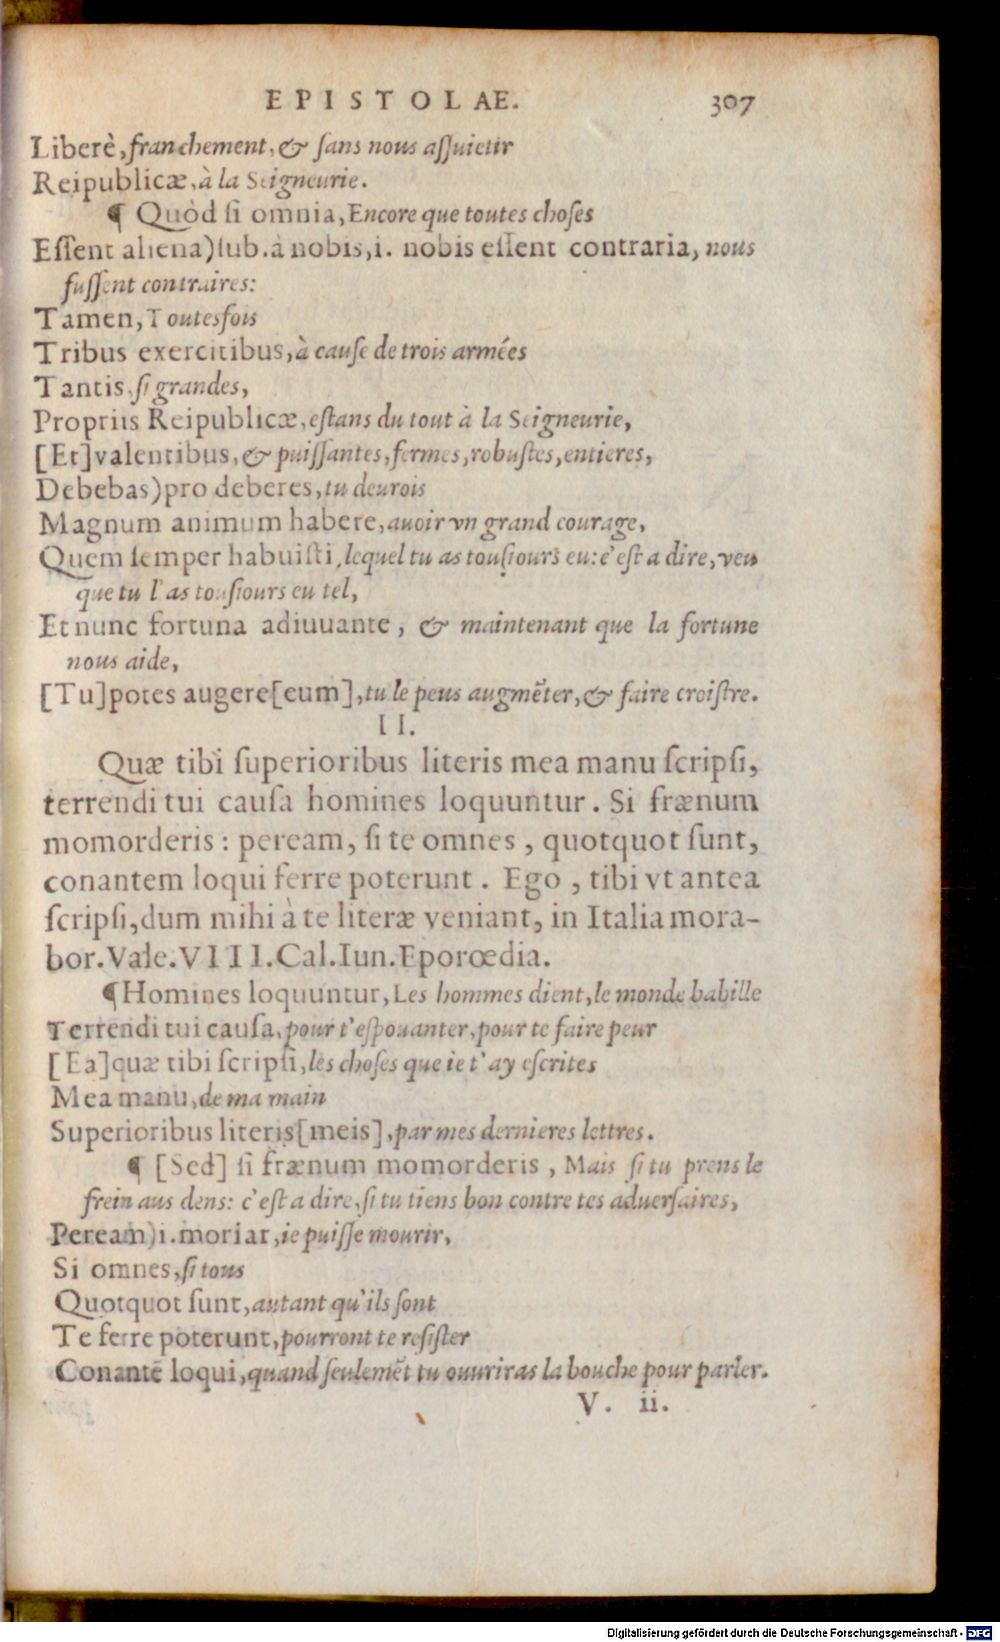 EPISTOLAE. 307
Liberè, franchement, & sans nous assuietir
Reipublicæ, à la Seigneurie.
¶ Quòd si omnia, Encore que toutes choses
Essent aliena) sub. à nobis, i. nobis essent contraria, nous
fussent contraires:
Tamen, Toutesfois
Tribus exercitibus, à cause de trois armées
Tantis, si grandes,
Propriis Reipublicæ, estans du tout à la Seigneurie,
[Et] valentibus, & puissantes, fermes, robustes, entieres,
Debebas) pro deberes, tu deurois
Magnum animum habere, auoir vn grand courage,
Quem semper habuisti, lequel tu as tousiours eu: c'est a dire, veu
que tu l'as tousiours eu tel,
Et nunc fortuna adiuuante, & maintenant que la fortune
nous aide,
[Tu] potes augere [eum], tu le peus augmẽter, & faire croistre.
II.
Quæ tibi superioribus literis mea manu scripsi,
terrendi tui causa homines loquuntur. Si frænum
momorderis: peream, si te omnes, quotquot sunt,
conantem loqui ferre poterunt. Ego, tibi vt antea
scripsi, dum mihi à te literæ veniant, in Italia mora-
bor. Vale. VIII. Cal. Iun. Eporœdia.
¶ Homines loquuntur, Les hommes dient, le monde babille
Terrendi tui causa, pour t'espouanter, pour te faire peur
[Ea] quæ tibi scripsi, les choses que ie t'ay escrites
Mea manu, de ma main
Superioribus literis [meis], par mes dernieres lettres.
¶ [Sed] si frænum momorderis, Mais si tu prens le
frein aus dens: c'est a dire, si tu tiens bon contre tes aduersaires,
Peream) i. moriar, ie puisse mourir,
Si omnes, si tous
Quotquot sunt, autant qu'ils sont
Te ferre poterunt, pourront te resister
Conantẽ loqui, quand seulemẽt tu ouuriras la bouche pour parler.
V. ii.
Digitalisierung gefördert durch die Deutsche Forschungsgemeinschaft - DFG